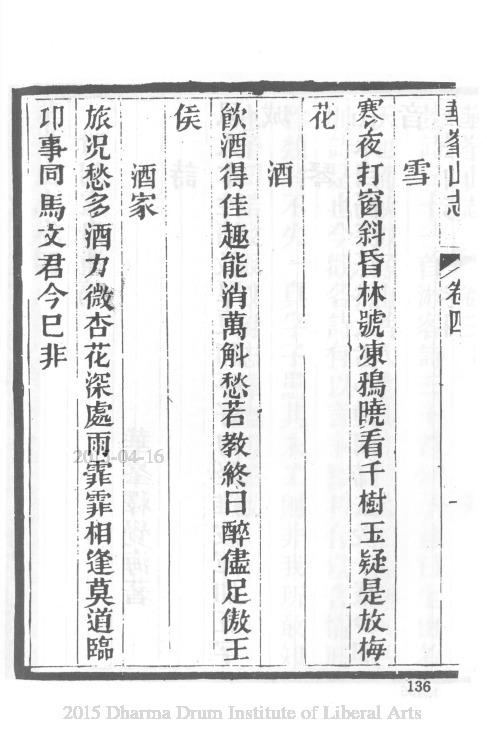 華峯山志
卷四
雪
寒夜打窗斜昏林號凍鴉曉看千樹玉疑是放梅
花
酒
飲酒得佳趣能消萬斛愁若教終日醉儘足傲王
侯
酒家
旅況愁多酒力微杏花深處雨霏霏相逢莫道臨
邛事同馬文君今巳非
136
2015-04-16
2015 Dharma Drum Institute of Liberal Arts